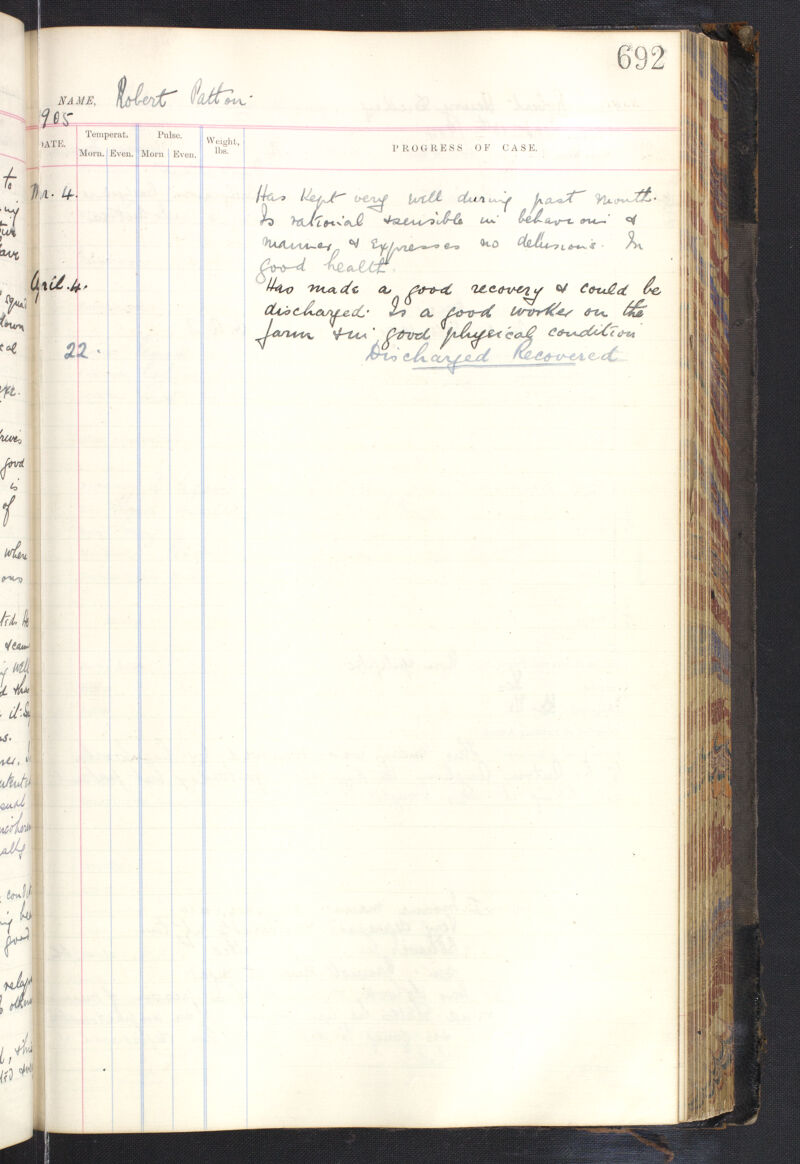 692
NAME, Robert Patton.
905
DATE. Temperat. Pulse. Weight, lbs. PROGRESS OF CASE.
Morn. Even. Morn Even.
Mr. 4. Has kept very well during past month.
Is rational & sensible in behaviour &
manner & expresses no delusions. In
good health.
April. 4. Has made a good recovery & could be
discharged. Is a good worker on the
farm & in good physical condition
22. Discharged Recovered